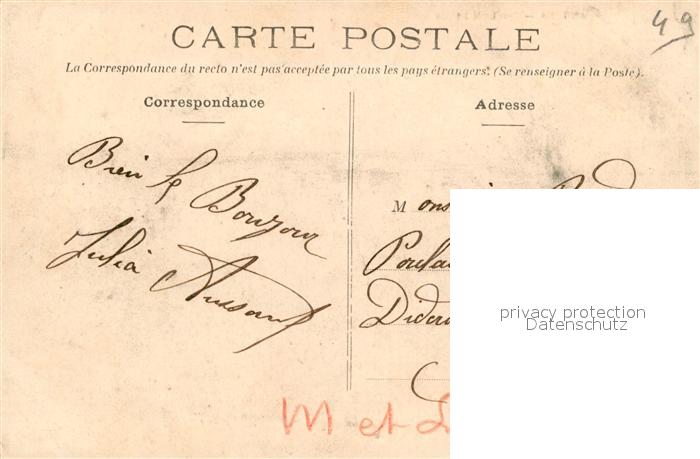 49
CARTE POSTALE
La Correspondance du recto n'est pas acceptée par tous les pays étrangers. (Se renseigner à la Poste).
Correspondance
Adresse
Bien le Bonjour
Julia
M ons
M et L
privacy protection
Datenschutz